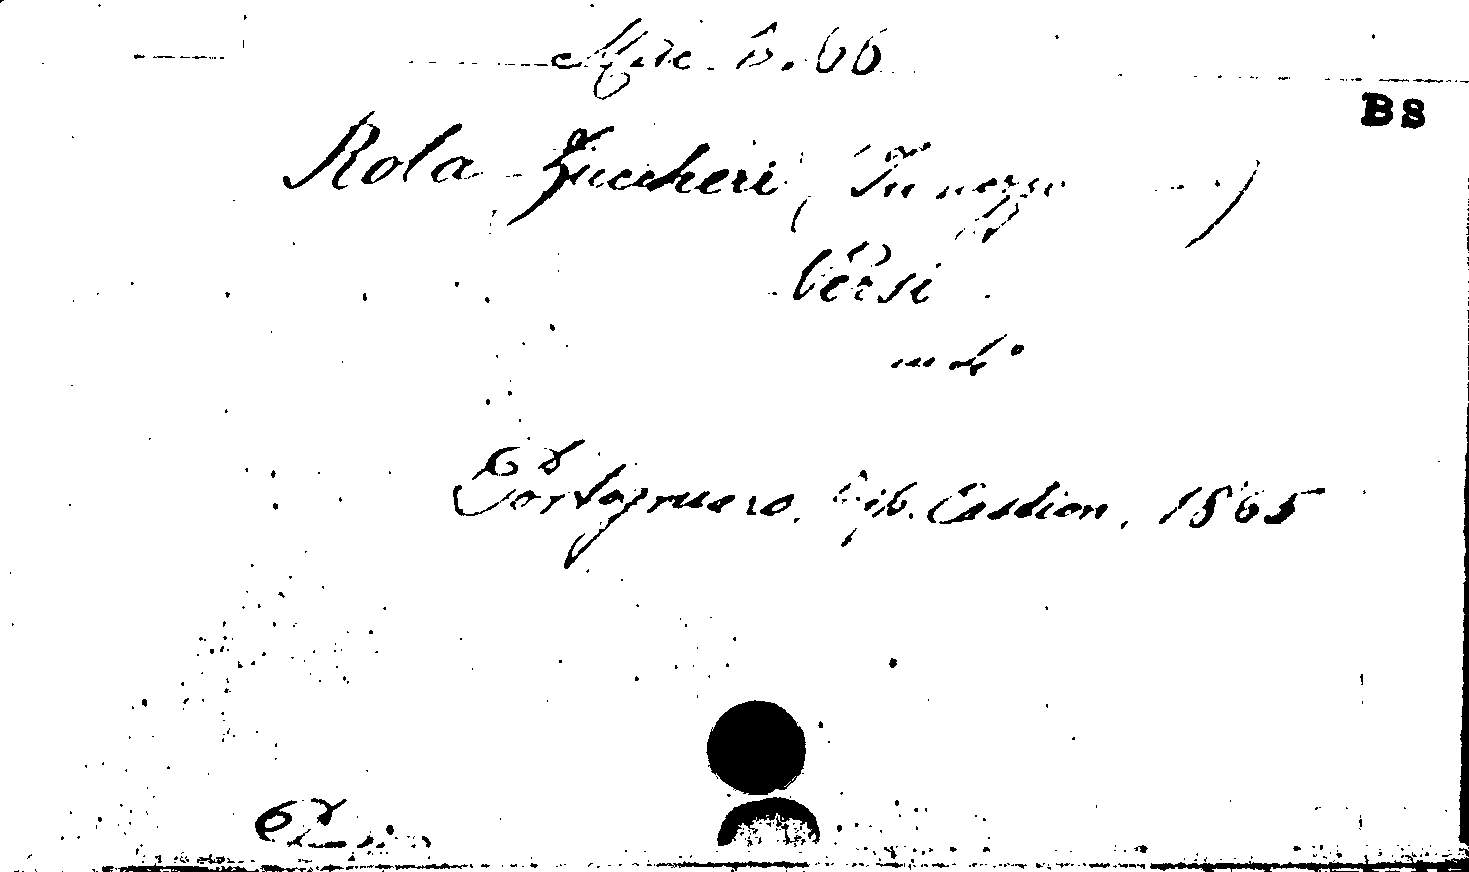 Misc. B. 66
BS
Rola - Zuccheri (In nozze ...)
Versi
in 4°
Portogruaro, Tip. Castion, 1865